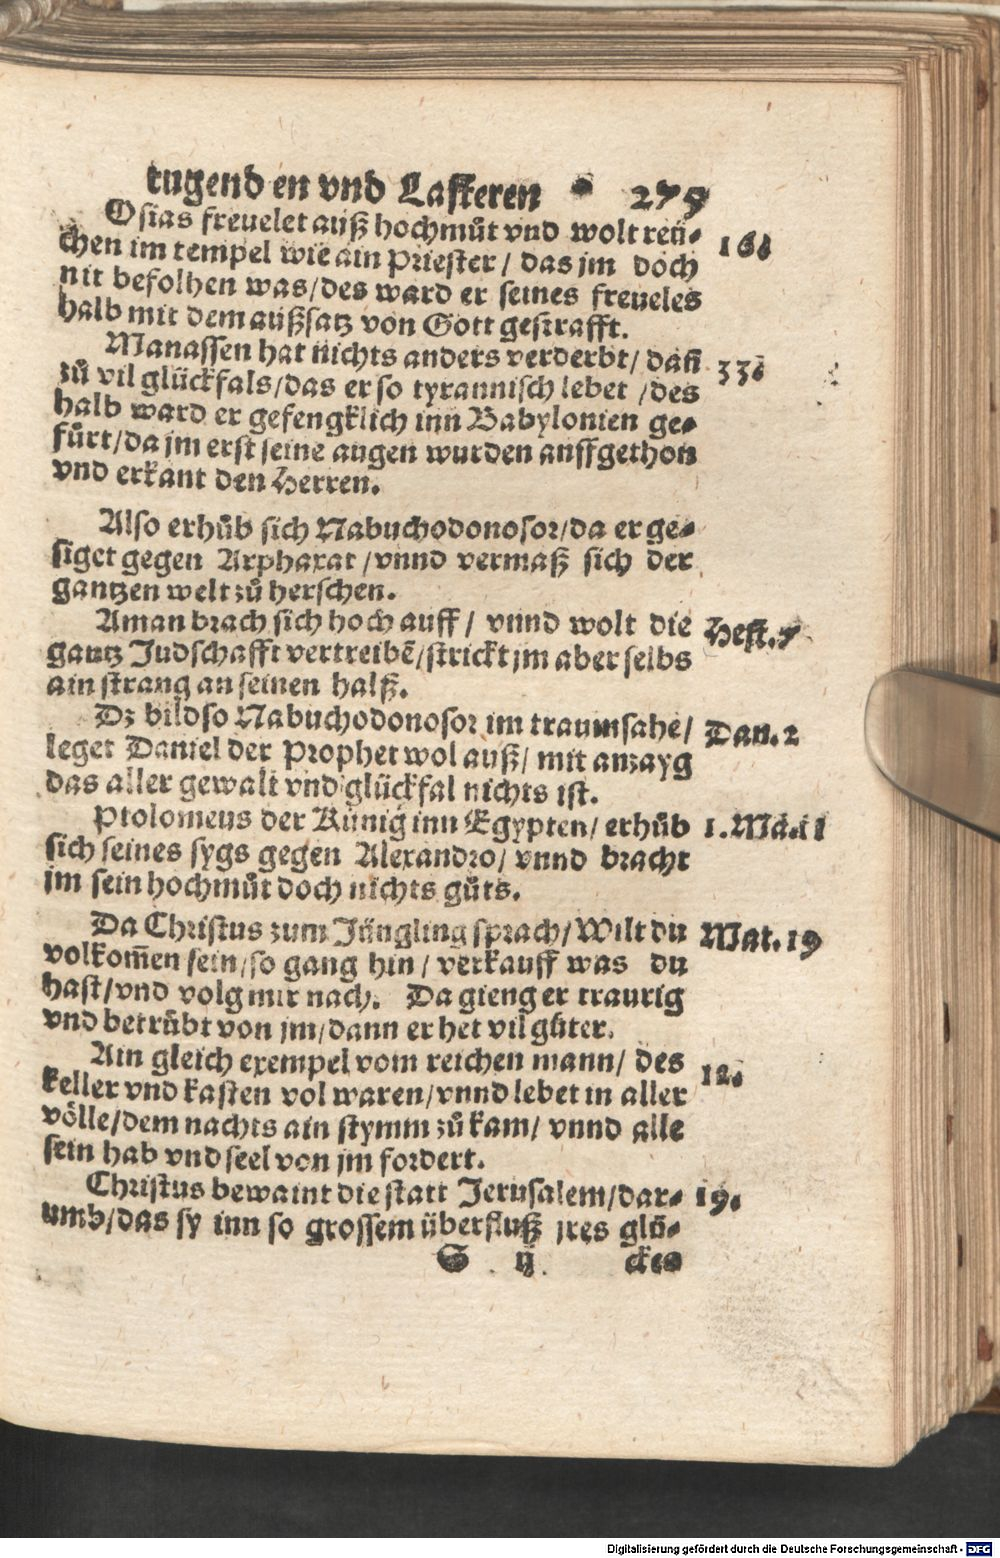 tugend en vnd Lasteren 275
Osias freuelet auß hochmůt vnd wolt reü-
chen im tempel wie ain Priester / das jm doch
nit befolhen was / des ward er seines freueles
halb mit dem außsatz von Gott gestrafft.
Manassen hat nichts anders verderbt / dañ
zů vil glückfals / das er so tyrannisch lebet / des
halb ward er gefengklich inn Babylonien ge-
fürt / da jm erst seine augen wurden auffgethon
vnd erkant den Herren.
Also erhůb sich Nabuchodonosor / da er ge-
siget gegen Arphaxat / vnnd vermaß sich der
gantzen welt zů herschen.
Aman brach sich hoch auff / vnnd wolt die
gantz Judschafft vertreibẽ / strickt jm aber selbs
ain strang an seinen halß.
Hest. 7
Dz bild so Nabuchodonosor im traum sahe /
leget Daniel der Prophet wol auß / mit anzayg
das aller gewalt vnd glückfal nichts ist.
Dan. 2
Ptolomeus der Künig inn Egypten / erhůb
sich seines sygs gegen Alexandro / vnnd bracht
jm sein hochmůt doch nichts gůts.
Da Christus zum Jüngling sprach / Wilt du
volkom̃en sein / so gang hin / verkauff was du
hast / vnd volg mir nach. Da gieng er traurig
vnd betrübt von jm / dann er het vil gůter.
Mat. 19
Ain gleich exempel vom reichen mann / des
keller vnd kasten vol waren / vnnd lebet in aller
völle / dem nachts ain stymm zů kam / vnnd alle
sein hab vnd seel von jm fordert.
12.
Christus bewaint die statt Jerusalem / dar-
umb / das sy inn so grossem überfluß jres glü-
19.
S ij ckes
Digitalisierung gefördert durch die Deutsche Forschungsgemeinschaft - DFG